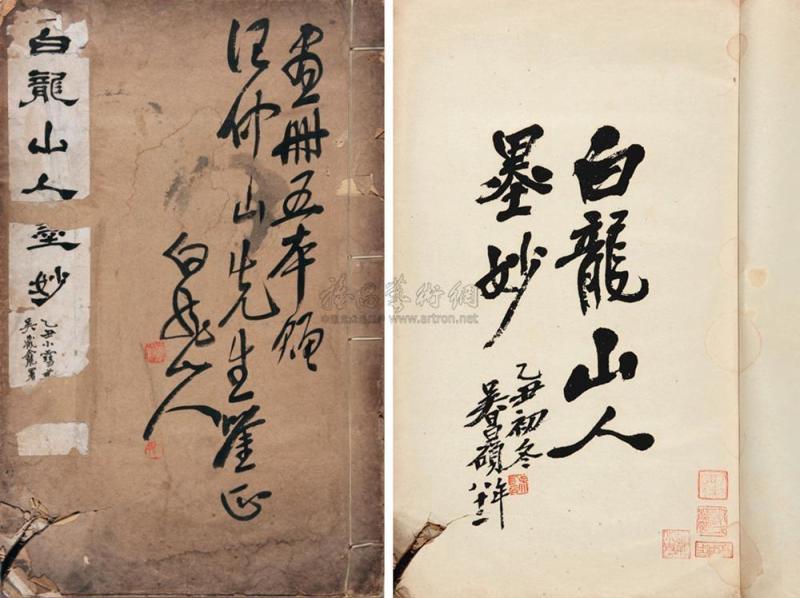 白龍山人墨妙
乙丑小雪
畫冊五本贈
汪仲山先生鑒正
白龍山人
白龍山人
墨妙
乙丑初冬
吳昌碩年八十二
雅昌藝術網
www.artron.net